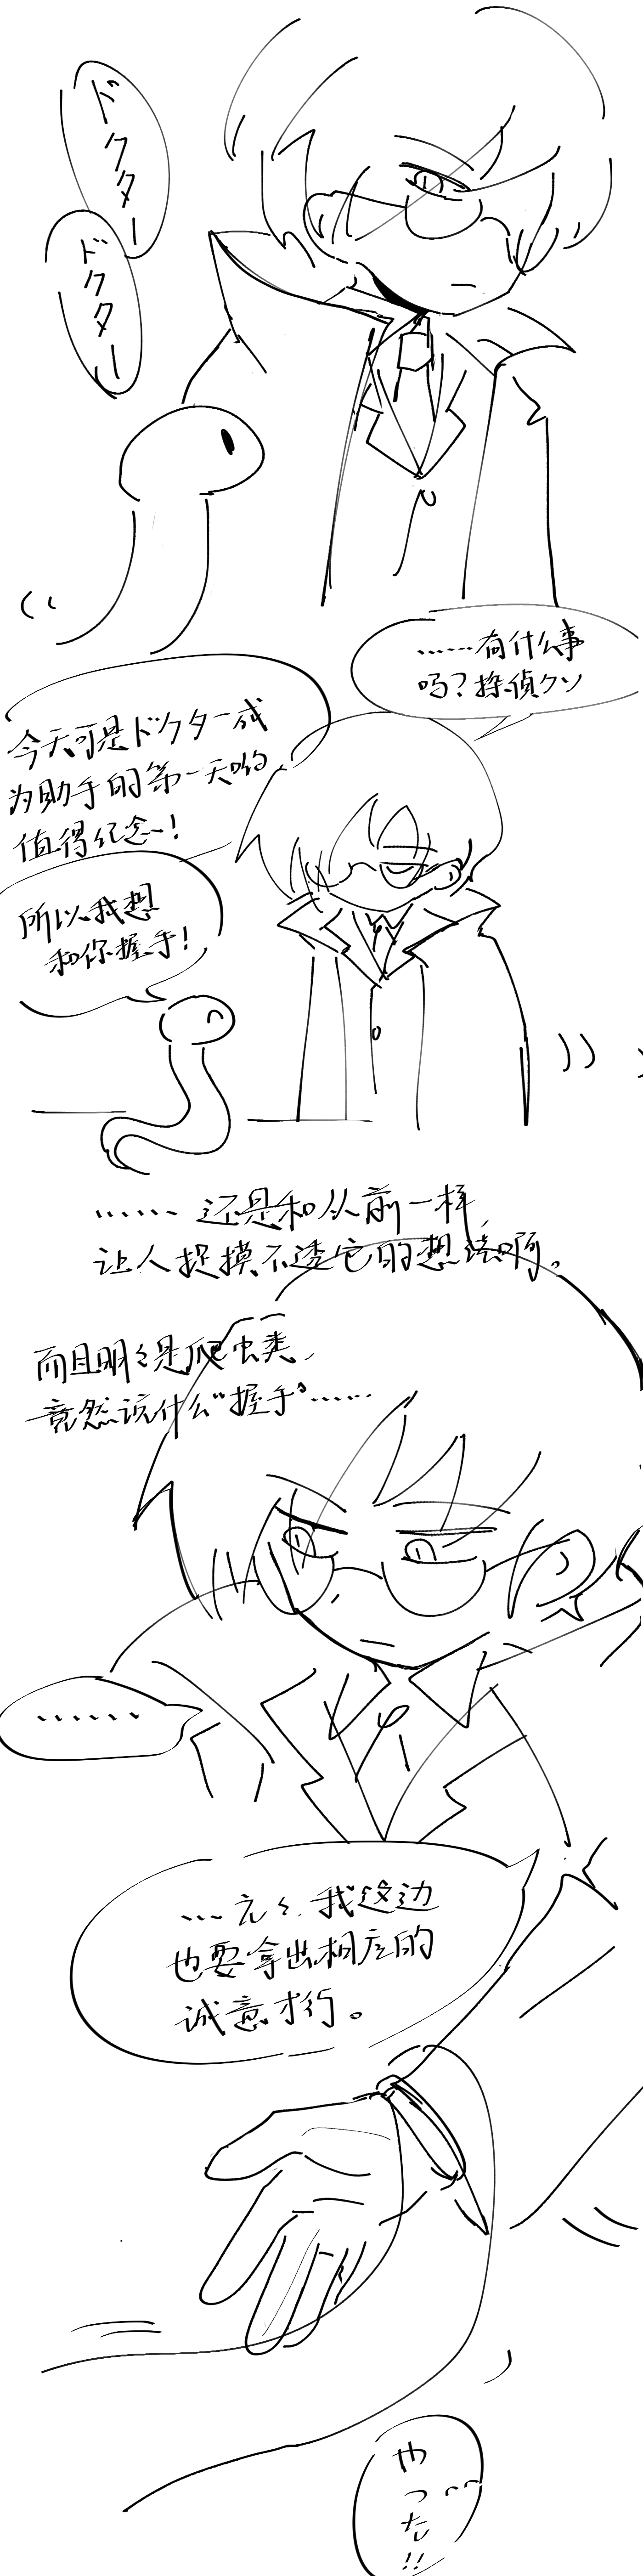 ドクター
ドクター
……有什么事
吗？探偵クン
今天可是ドクター成
为助手的第一天哟
值得纪念~！
所以我想
和你握手！
……还是和从前一样，
让人捉摸不透它的想法啊。
而且明々是爬虫类，
竟然说什么“握手”……
……
…元々，我这边
也要拿出相应的
诚意才行。
やった!!